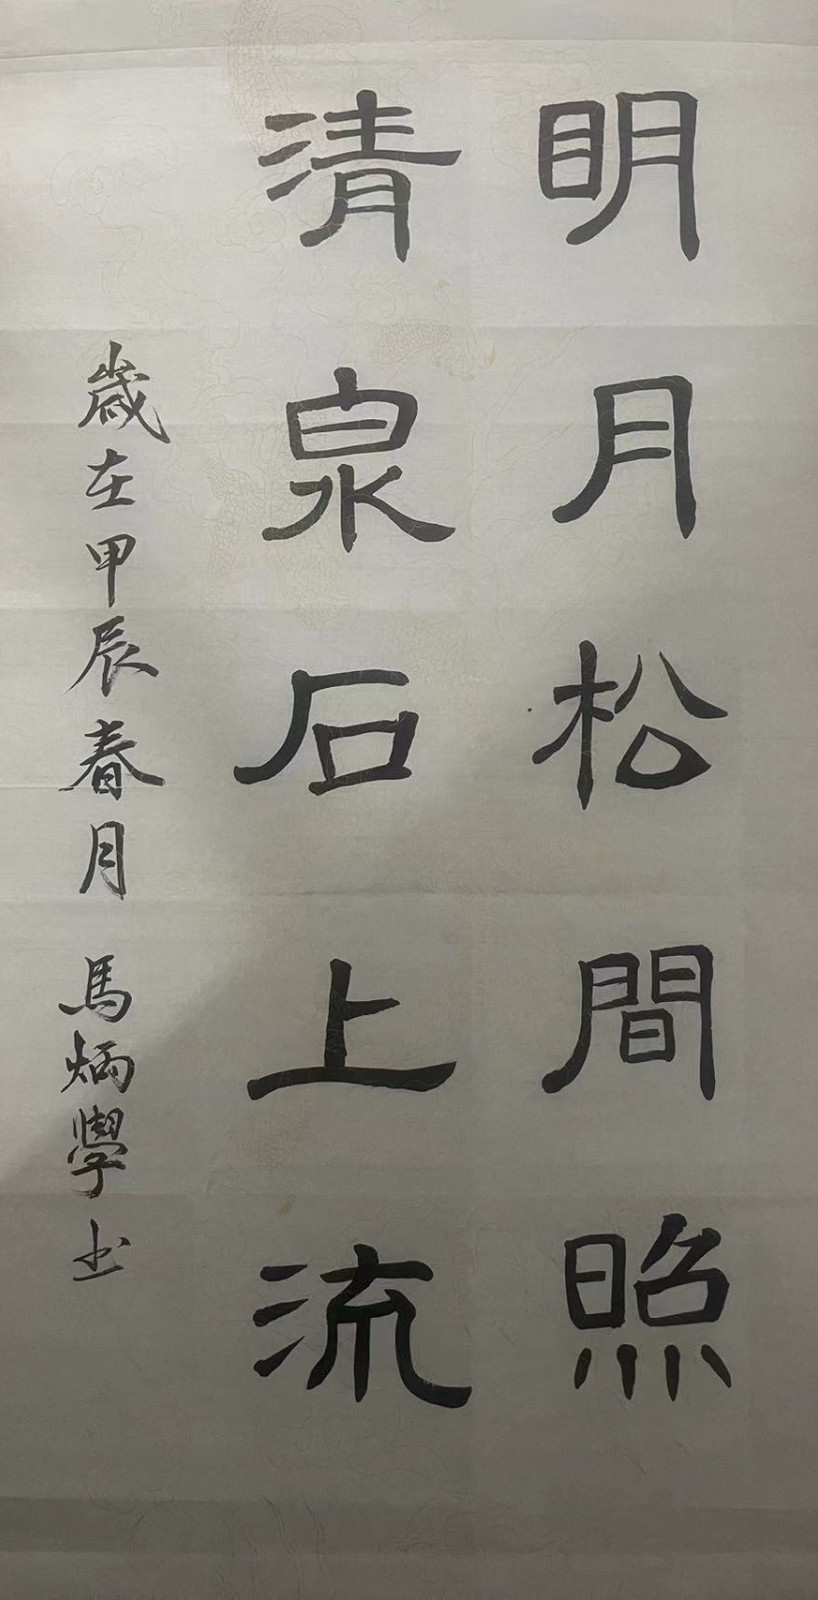 明月松間照
清泉石上流
歲在甲辰春月 馬炳學书